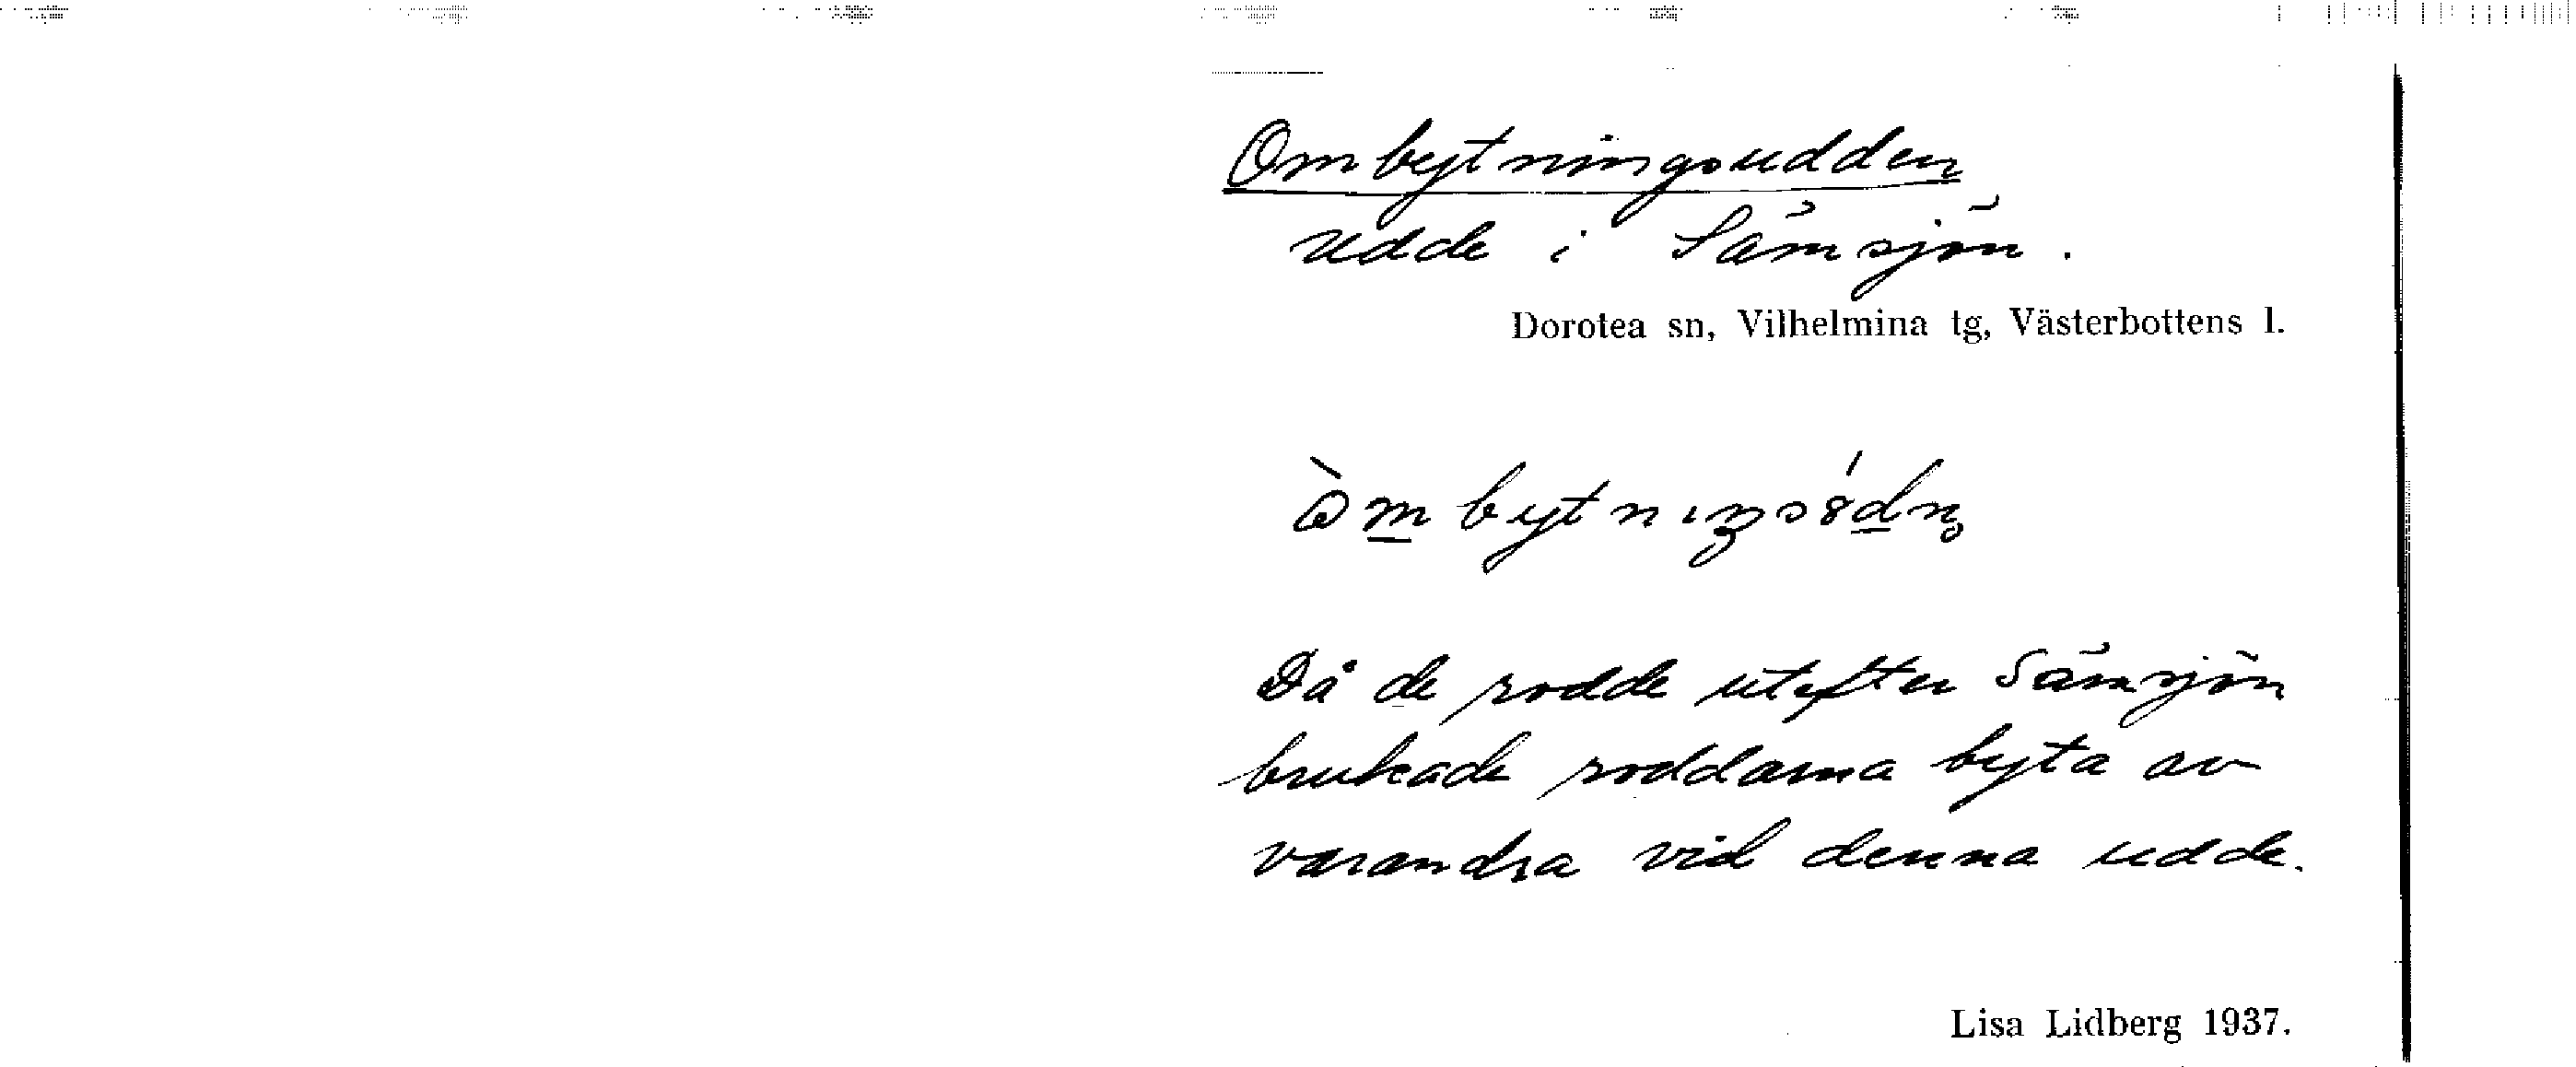 Ombytningsudden
udde i Sämsjön.
Dorotea sn, Vilhelmina tg, Västerbottens l.
Då de rodde utefter Sämsjön
brukade roddarna byta av
varandra vid denna udde.
Lisa Lidberg 1937.